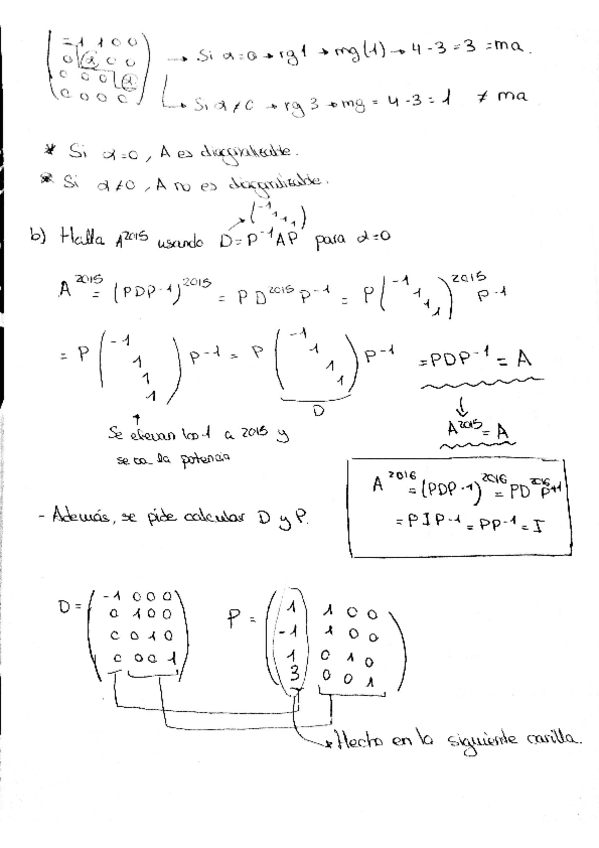 (-1 1 0 0
0 α 0 0
0 0 0 α
0 0 0 0) → Si α=0 → rg 1 → mg(1) → 4-3=3 = ma.
→ Si α≠0 → rg 3 → mg = 4-3=1 ≠ ma
* Si α=0, A es diagonalizable.
* Si α≠0, A no es diagonalizable.
(-1 1 1 1)
b) Halla A^2015 usando D=P^-1AP para α=0
A^2015 = (PDP^-1)^2015 = PD^2015 P^-1 = P(-1 1 1 1)^2015 P^-1
= P(-1 1 1 1)P^-1 = P(-1 1 1 1)P^-1 = PDP^-1 = A
D
Se elevan los 1 a 2015 y
se va la potencia
A^2015 = A
A^2016 = (PDP^-1)^2016 = PD^2016 P^-1
= PIP^-1 = PP^-1 = I
- Además, se pide calcular D y P.
D = (-1 0 0 0
0 1 0 0
0 0 1 0
0 0 0 1)
P = (1 1 0 0
-1 1 0 0
1 0 1 0
3 0 0 1)
* Hecho en la siguiente carilla.